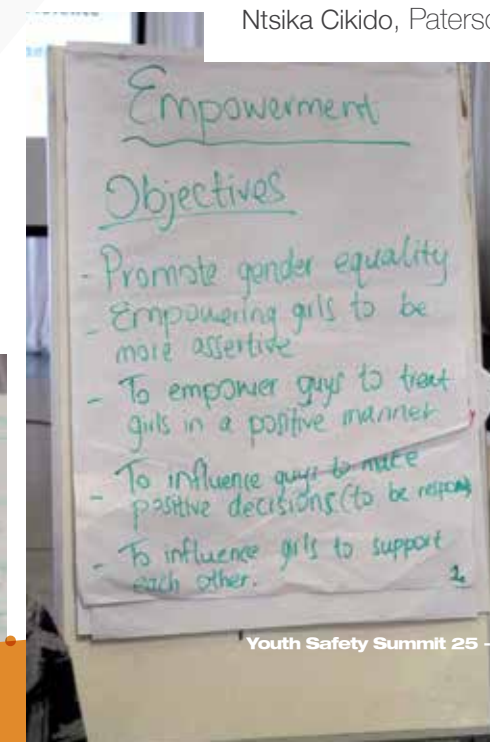 Ntsika Cikido, Paterso
Empowerment
Objectives
- Promote gender equality
- Empowering girls to be
more assertive
- To empower guys to treat
girls in a positive manner
- To influence guys to make
positive decisions (to be respons
- To influence girls to support
each other.
1.
Youth Safety Summit 25 -